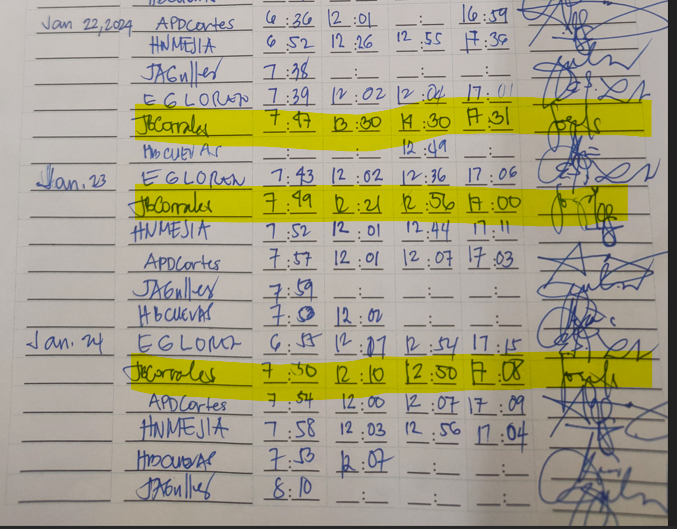 Jan 22, 2024 APDCortes 6:36 12:01 __:__ 16:59
HNMEJIA 6:52 12:26 12:55 17:36
JAGulles 7:38 __:__ __:__ __:__
EGLOREN 7:39 12:02 12:04 17:01
JBCorrales 7:47 13:30 14:30 17:31
HBCUEVAS __:__ __:__ 12:49 __:__
Jan. 23 EGLOREN 7:43 12:02 12:36 17:06
JBCorrales 7:49 12:21 12:56 17:00
HNMEJIA 7:52 12:01 12:44 17:11
APDCortes 7:57 12:01 12:07 17:03
JAGulles 7:59 __:__ __:__ __:__
HBCUEVAS 12:02 __:__ __:__
Jan. 24 EGLOREN 6:55 12:07 12:54 17:15
JBCorrales 7:50 12:10 12:50 17:08
APDCortes 7:54 12:00 12:07 17:09
HNMEJIA 7:58 12:03 12:56 17:04
HBCUEVAS 7:53 12:07 __:__ __:__
JAGulles 8:10 __:__ __:__ __:__